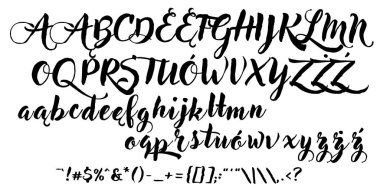 AĄBCDEĘFGHIJKLMN
OQPRSTUÓWVXYZŻŹ
aąbcdeęfghijklłmn
oqprsśtuówvxyzżź
!#$%^&*()-_+={[}];:"'"\|\\,.<?